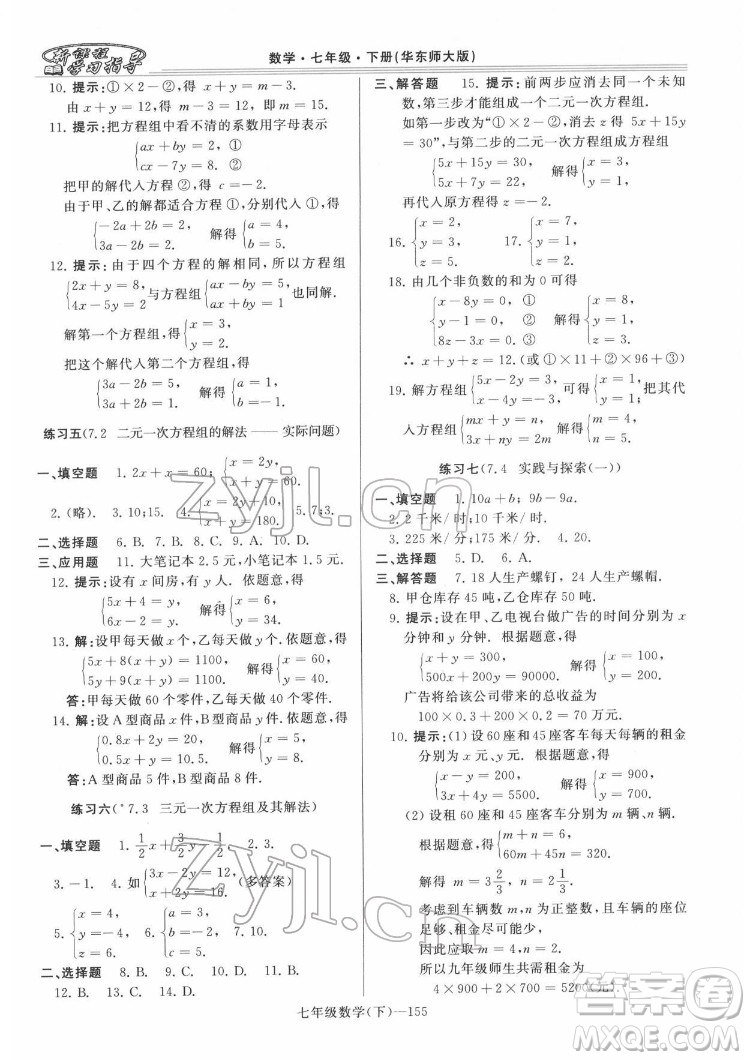 新课程学习指导
数学·七年级·下册(华东师大版)
10. 提示:①×②-②,得 (m-3)x=12.
由 x+y=12,得 m-3=12,即 m=15.
11. 提示:把方程组中看不清的系数用字母表示
{ax+by=2, ①
{cx-7y=8. ②
把甲的解代人方程②,得 c=-2.
由于甲、乙的解都适合方程①,分别代人①,得
{-2a+2b=2, 解得{a=4,
{3a-2b=2. {b=5.
12. 提示:由于四个方程的解相同,所以方程组
{2x+y=8, 与方程组
{4x-5y=2
也同解.
解第一个方程组,得{x=3,
{y=2.
把这个解代人第二个方程组,得
{3a-2b=5, 解得{a=3,
{3a+2b=13. {b=2.
练习五(7.2 二元一次方程组的解法——实际问题)
一、填空题 1. 2x+x=60;{x=2y,
{x+y=60.
2.(略). 3. 10;15. 4.
x+y=180. 5. 7;3.
二、选择题 6. B. 7. B. 8. C. 9. A. 10. D.
三、应用题 11. 大笔记本 2.5 元,小笔记本 1.5 元.
12. 提示:设有 x 间房,有 y 人. 依题意,得
{5x+4=y, 解得{x=6,
{6x-2=y. {y=34.
13. 解:设甲每天做 x 个,乙每天做 y 个. 依题意,得
{5x+8(x+y)=1100, 解得{x=60,
{5y+9(x+y)=1100. {y=40.
答:甲每天做 60 个零件,乙每天做 40 个零件.
14. 解:设 A 型商品 x 件,B 型商品 y 件. 依题意,得
{0.8x+2y=20, 解得{x=5,
{0.5x+y=10.5. {y=8.
答:A 型商品 5 件,B 型商品 8 件.
练习六(*7.3 三元一次方程组及其解法)
一、填空题 1. 1/2x+3/2y=12. 2. 3.
3. -1. 4. 如{3x-2y=12, (多答案)
{x+2y=16.
5. {x=4, 6. {a=3,
{y=5, {b=2,
{z=6. {c=5.
二、选择题 8. B. 9. C. 10. C. 11. D.
12. B. 13. B. 14. D.
三、解答题 15. 提示:前两步应消去同一未知
数,第三步才能组成一个二元一次方程组.
如第一步改为“①×2-②,消去 z 得 5x+15y
=30”,与第二步的二元一次方程组成方程组
{5x+15y=30, 解得{x=3,
{5x+7y=22. {y=1.
再代人原方程得 z=-2.
16. {x=2, 17. {x=7,
{y=3, {y=1,
{z=5. {z=2.
18. 由几个非负数的和为 0 可得
{x-8y=0, ① {x=8,
{4y-1=0, ② 解得{y=1,
{8z-3x=0. ③ {z=3.
∴ x+y+z=12.(或①×11+②×96+③)
19. 解方程组{5x-2y=3, 可得{x=1, 把其代
{x-4y=-3, {y=1.
人方程组{mx+y=n,
{3x+ny=4.
练习七(7.4 实践与探索(一))
一、填空题 1. 10a+b;9b-9a.
2. 2 千米/时;10 千米/时.
3. 225 米/分;175 米/分. 4. 20.
二、选择题 5. D. 6. A.
三、解答题 7. 18 人生产螺钉,24 人生产螺帽.
8. 甲仓库存 45 吨,乙仓库存 50 吨.
9. 提示:设在甲、乙电视台做广告的时间分别为 x
分钟和 y 分钟. 根据题意,得
{x+y=300, 解得{x=100,
{500x+200y=90000. {y=200.
广告将给该公司带来的总收益为
100×0.3+200×0.2=70 万元.
10. 提示:(1) 设 60 座和 45 座客车每天每辆的租金
分别为 x 元、y 元. 根据题意,得
{x-y=200, 解得{x=900,
{3x+4y=5500. {y=700.
(2) 设租 60 座和 45 座客车分别为 m 辆、n 辆.
根据题意,得{m+n=6,
解得 m=3 2/3, n=2 1/3.
考虑到车辆数 m,n 为正整数,且车辆的座位
足够,租金尽可能少,
因此应取 m=4, n=2.
所以九年级师生共需租金
4×900+2×700=5200(元).
七年级数学(下)—155
zyjl.cn
zyjl.cn
答案卷